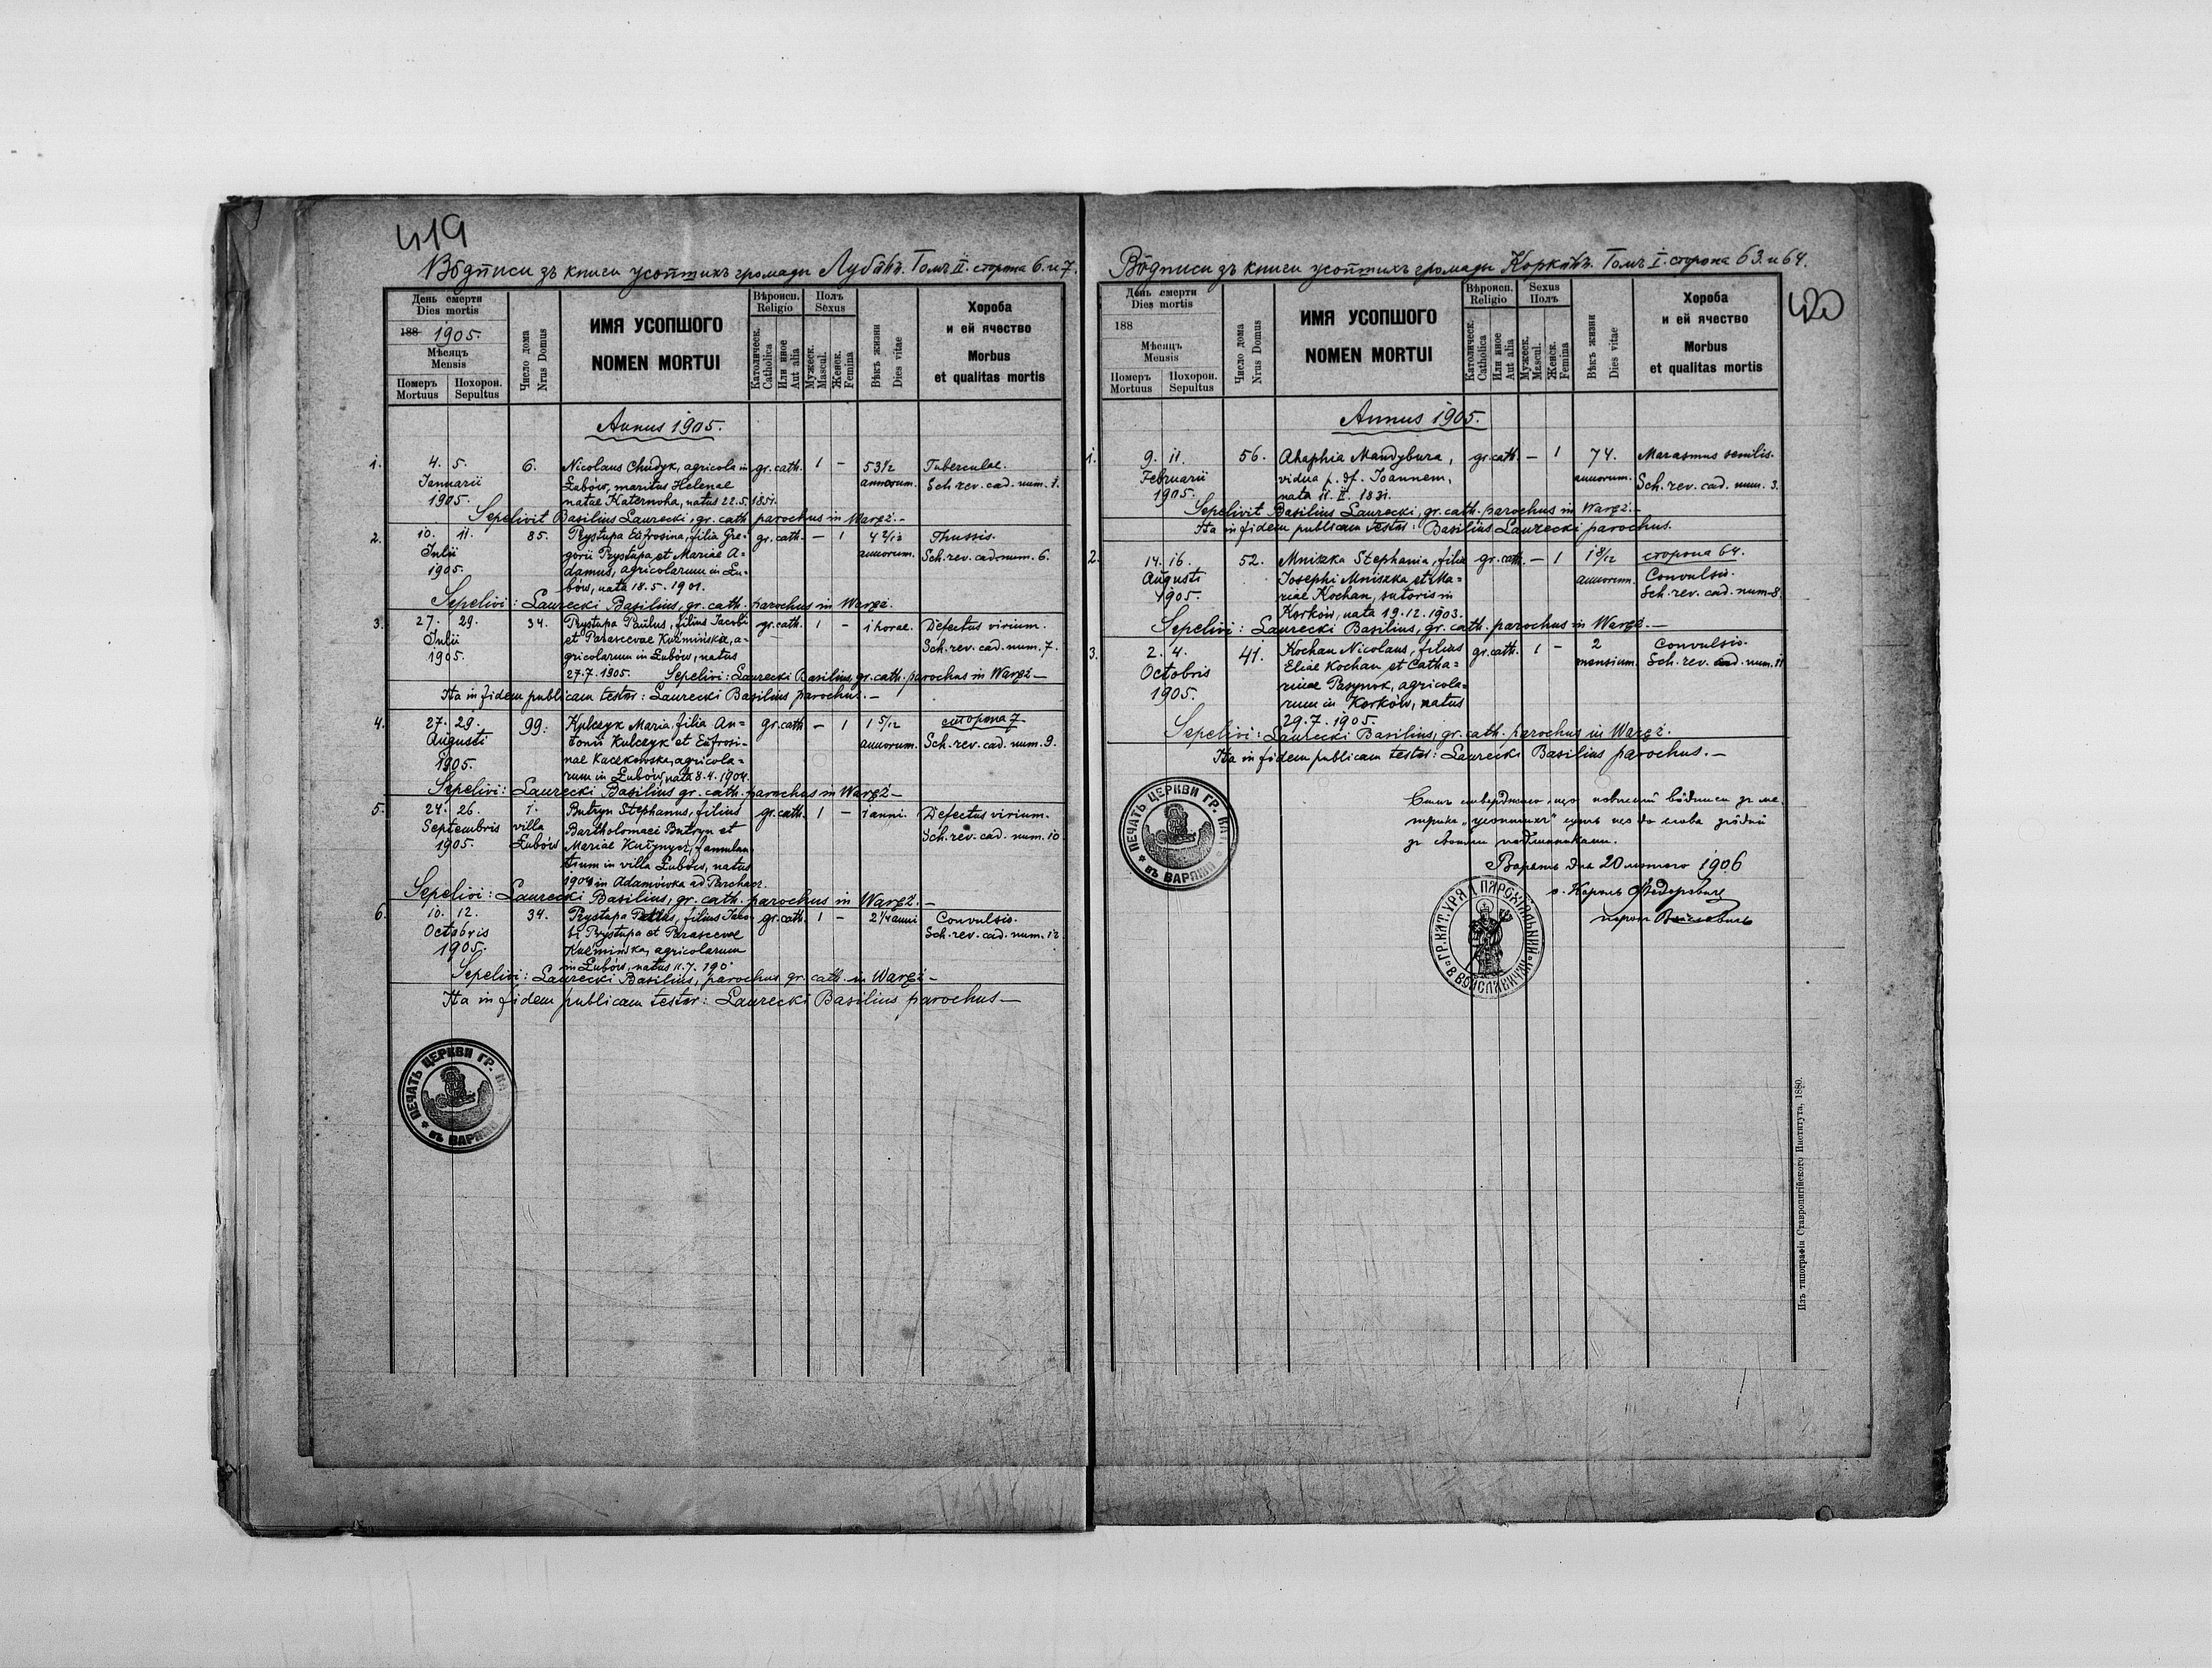 419
Вôдписи зъ книги усопшихъ громады Лубôвъ. Томъ II. сторона 6. и 7.
День смерти
Dies mortis
188 1905.
Мѣсяцъ
Mensis
Померъ
Mortuus
Похорон.
Sepultus
Число дома
Nrus Domus
ИМЯ УСОПШОГО
NOMEN MORTUI
Вѣроисп.
Religio
Католическ.
Catholica
Или иное
Aut alia
Полъ
Sexus
Мужеск.
Mascul.
Женск.
Femina
Вѣкъ жизни
Dies vitae
Хороба
и ей ячество
Morbus
et qualitas mortis
Annus 1905.
1. 4. 5. 6. Nicolaus Chudyk, agricola in gr. cath. 1 - 53 1/2 Tuberculae.
Januarii Łubów, maritus Helenae annorum. Sch. rev. cad. num. 1.
1905. natae Katernoha, natus 22.5.1851.
Sepelivit Basilius Laurecki, gr. cath. parochus in Waręż.-
2. 10. 11. 85. Prystupa Eufrosina, filia Gre- gr. cath. - 1 4 2/12 Thussis.
Julii gorii Prystupa et Mariae A- annorum. Sch. rev. cad. num. 6.
1905. damus, agricolarum in Łu-
bów, nata 18.5.1901.
Sepelivi: Laurecki Basilius, gr. cath. parochus in Waręż.
3. 27. 29. 34. Prystupa Paulus, filius Jacobi gr. cath. 1 - 1 horae. Defectus virium.
Julii et Parascevae Kuźmińska, a- Sch. rev. cad. num. 7.
1905. gricolarum in Łubów, natus
27.7.1905. Sepelivi: Laurecki Basilius, gr. cath. parochus in Waręż-
Ita in fidem publicam testor: Laurecki Basilius parochus.-
4. 27. 29. 99. Kulczyk Maria, filia An- gr. cath. - 1 1 5/12 сторона 7
Augusti tonii Kulczyk et Eufrosi- annorum. Sch. rev. cad. num. 9.
1905. nae Kaczkowska, agricola-
rum in Łubów, nata 8.4.1904.
Sepelivi: Laurecki Basilius gr. cath. parochus in Waręż-
5. 24. 26. 1. Butryn Stephanus, filius gr. cath. 1 - 1 anni. Defectus virium.
Septembris villa Bartholomaei Butryn et Sch. rev. cad. num. 10
1905. Łubów Mariae famulan-
tium in villa Łubów, natus
1904 in Adamówka ad Parchacz.
Sepelivi: Laurecki Basilius, gr. cath. parochus in Waręż.-
6. 10. 12. 34. Prystupa filius Jaco- gr. cath. 1 - 2 1/4 anni Convulsio.
Octobris bi Prystupa et Parascevae Sch. rev. cad. num. 12.
1905. Kuźmińska, agricolarum
in Łubów, natus 11.7.190
Sepelivi: Laurecki Basilius, parochus gr. cath. in Waręż-
Ita in fidem publicam testor: Laurecki Basilius parochus-
ПЕЧАТЬ ЦЕРКВИ ГР. КА
въ ВАРЯЖИ
420
Вôдписи зъ книги усопшихъ громады Коркôвъ. Томъ I. сторона 63. и 64.
День смерти
Dies mortis
188
Мѣсяцъ
Mensis
Померъ
Mortuus
Похорон.
Sepultus
Число дома
Nrus Domus
ИМЯ УСОПШОГО
NOMEN MORTUI
Вѣроисп.
Religio
Католическ.
Catholica
Или иное
Aut alia
Sexus
Полъ
Мужеск.
Mascul.
Женск.
Femina
Вѣкъ жизни
Dies vitae
Хороба
и ей ячество
Morbus
et qualitas mortis
Annus 1905.
1. 9. 11. 56. Ahaphia Mandybura, gr. cath. - 1 74. Marasmus senilis.
Februarii vidua p. df. Joannem, annorum. Sch. rev. cad. num. 3.
1905. nata 11. II. 1831.
Sepelivit Basilius Laurecki, gr. cath. parochus in Waręż.-
Ita in fidem publicam testor: Basilius Laurecki parochus.
2. 14. 16. 52. Mniszka Stephania, filia gr. cath. - 1 1 8/12 сторона 64.
Augusti Josephi Mniszka et Ma- annorum. Convulsio.
1905. riae Kochan, sutoris in Sch. rev. cad. num. 8.
Korków, nata 19.12.1903.
Sepelivi: Laurecki Basilius, gr. cath. parochus in Waręż.-
3. 2. 4. 41. Kochan Nicolaus, filius gr. cath. 1 - 2 Convulsio.
Octobris Eliae Kochan et Catha- mensium. Sch. rev. cad. num. 11
1905. rinae Pasynok, agricola-
rum in Korków, natus
29.7.1905.
Sepelivi: Laurecki Basilius, gr. cath. parochus in Waręż.
Ita in fidem publicam testor: Laurecki Basilius parochus.-
ПЕЧАТЬ ЦЕРКВИ ГР. КАТ.
въ ВАРЯЖИ
що вôдписи зъ ме-
трики „усопшихъ" суть до слова згôдни
зъ своими подлинниками.
Варяжъ дна 20 лютого 1906
о. Кароль Федоровичъ
парох
ГР. КАТ. УРЯД ПАРОХІАЛЬНИЙ
В ВОЙСЛАВИЧАХ
Изъ типографіи Ставропигійского Института, 1880.